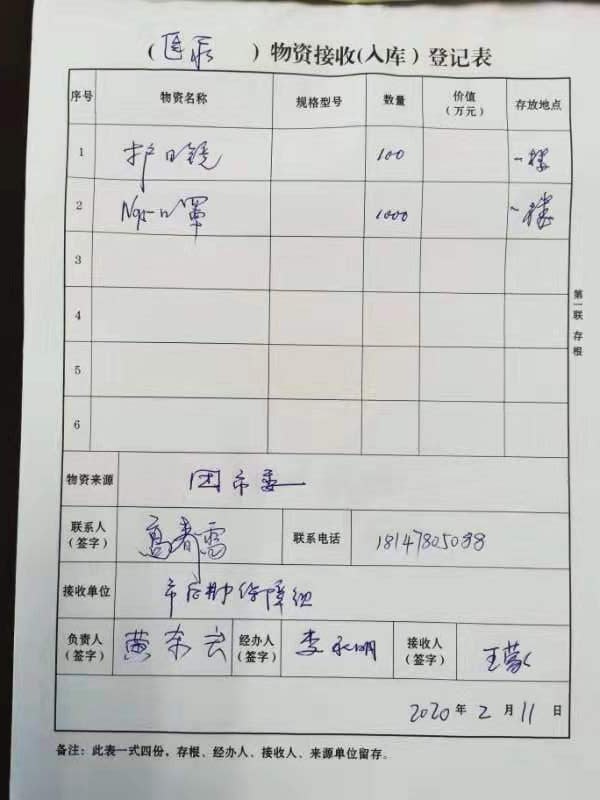 （医疗）物资接收(入库）登记表
序号 物资名称 规格型号 数量 价值（万元） 存放地点
1 护目镜 100 一楼
2 N95口罩 1000 一楼
3
4
5
6
物资来源 团市委
联系人（签字） 高春雷 联系电话 18147805088
接收单位 市后勤保障组
负责人（签字） 黄东云 经办人（签字） 李永明 接收人（签字） 王蒙
2020 年 2 月 11 日
备注：此表一式四份，存根、经办人、接收人、来源单位留存。
第一联 存根